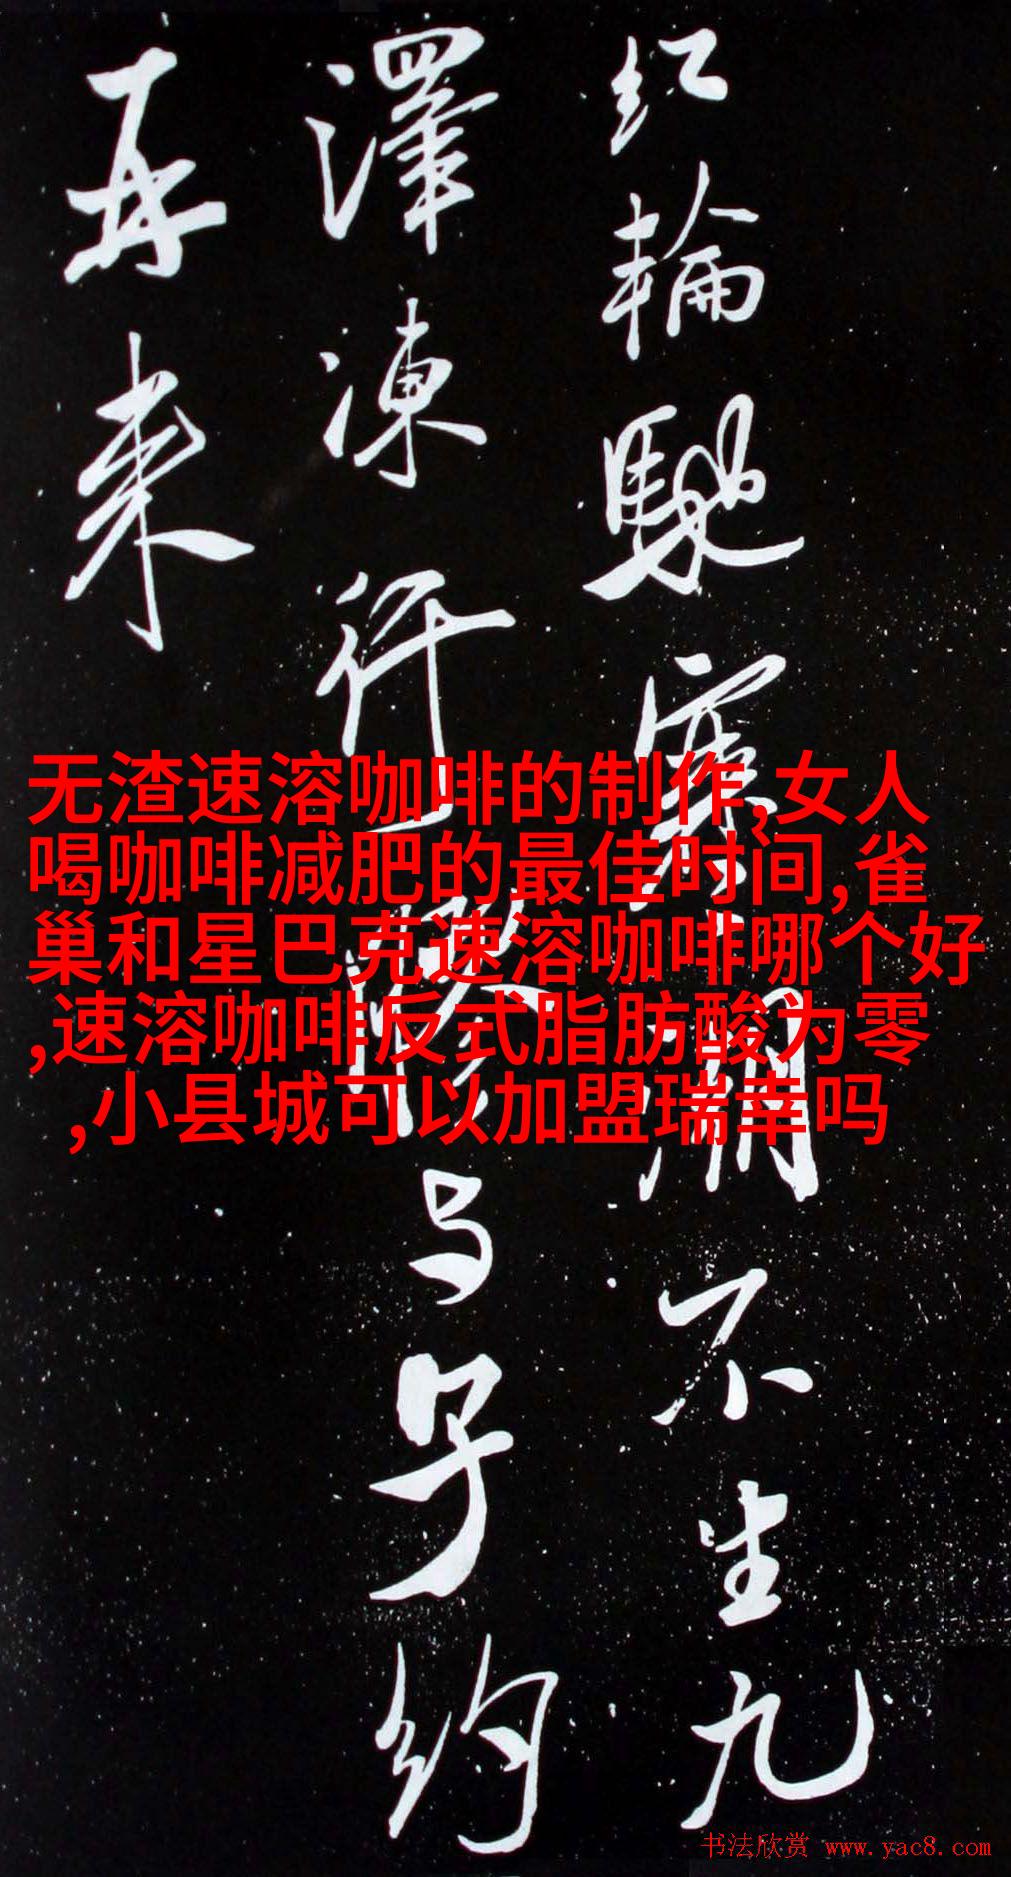 紅輪馳寒不生九
澤凍行与子約
再来
无渣速溶咖啡的制作,女人
喝咖啡减肥的最佳时间,雀
巢和星巴克速溶咖啡哪个好
,速溶咖啡反式脂肪酸为零
,小县城可以加盟瑞幸吗
书法欣赏 www.yac8.com